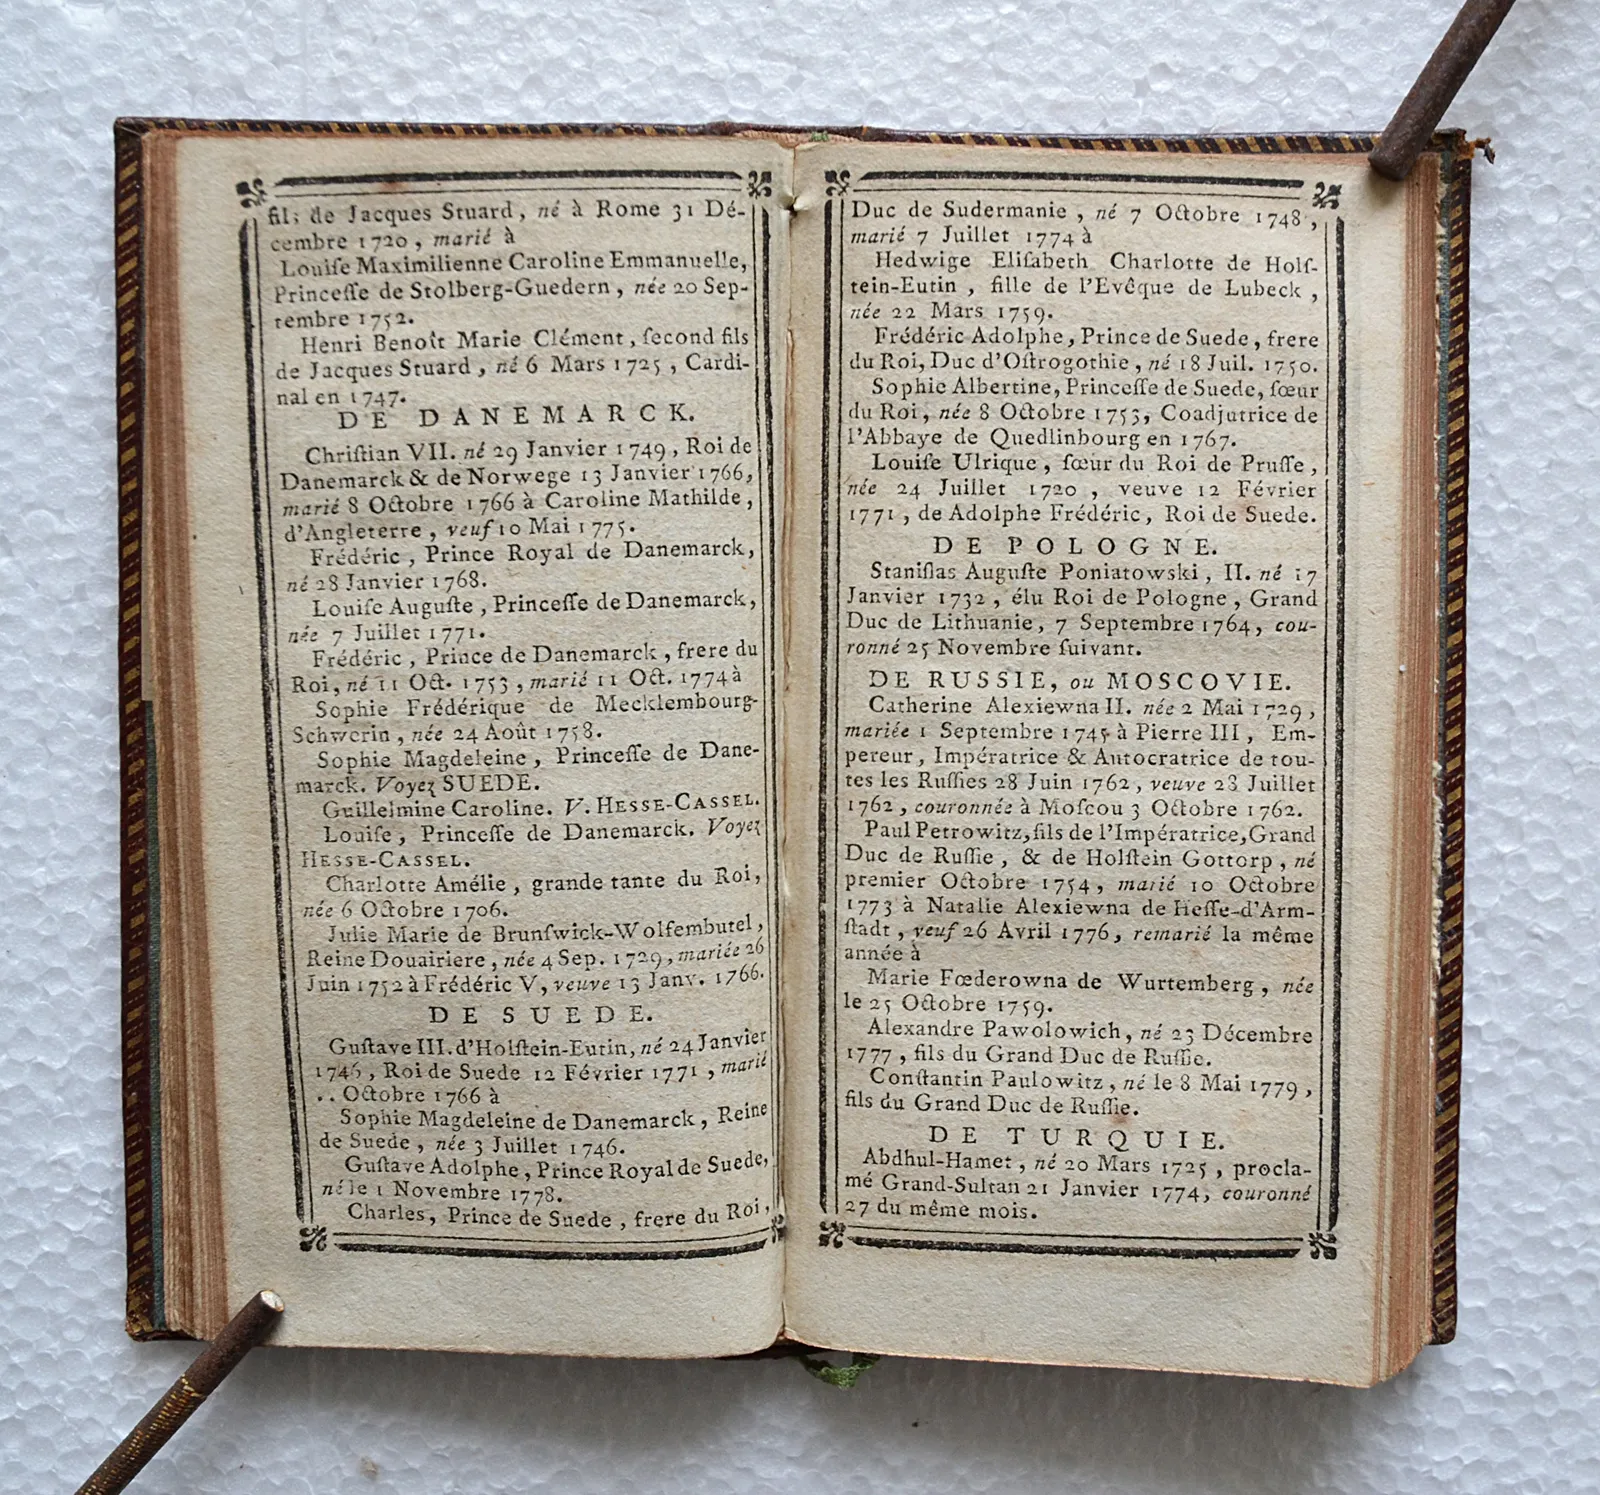 fils de Jacques Stuard, né à Rome 31 Dé-
cembre 1720, marié à
Louiſe Maximilienne Caroline Emmanuelle,
Princeſſe de Stolberg-Guedern, née 20 Sep-
tembre 1752.
Henri Benoît Marie Clément, ſecond fils
de Jacques Stuard, né 6 Mars 1725, Cardi-
nal en 1747.
DE DANEMARCK.
Chriſtian VII. né 29 Janvier 1749, Roi de
Danemarck & de Norwege 13 Janvier 1766,
marié 8 Octobre 1766 à Caroline Mathilde,
d'Angleterre, veuf 10 Mai 1775.
Frédéric, Prince Royal de Danemarck,
né 28 Janvier 1768.
Louiſe Auguſte, Princeſſe de Danemarck,
née 7 Juillet 1771.
Frédéric, Prince de Danemarck, frere du
Roi, né 11 Oct. 1753, marié 11 Oct. 1774 à
Sophie Frédérique de Mecklembourg-
Schwerin, née 24 Août 1758.
Sophie Magdeleine, Princeſſe de Dane-
marck. Voyez SUEDE.
Guillelmine Caroline. V. HESSE-CASSEL.
Louiſe, Princeſſe de Danemarck. Voyez
HESSE-CASSEL.
Charlotte Amélie, grande tante du Roi,
née 6 Octobre 1706.
Julie Marie de Brunſwick-Wolfembutel,
Reine Douairiere, née 4 Sep. 1729, mariée 26
Juin 1752 à Frédéric V, veuve 13 Janv. 1766.
DE SUEDE.
Guſtave III. d'Holſtein-Eutin, né 24 Janvier
1746, Roi de Suede 12 Février 1771, marié
.. Octobre 1766 à
Sophie Magdeleine de Danemarck, Reine
de Suede, née 3 Juillet 1746.
Guſtave Adolphe, Prince Royal de Suede,
né le 1 Novembre 1778.
Charles, Prince de Suede, frere du Roi,
Duc de Sudermanie, né 7 Octobre 1748,
marié 7 Juillet 1774 à
Hedwige Eliſabeth Charlotte de Holſ-
tein-Eutin, fille de l'Evêque de Lubeck,
née 22 Mars 1759.
Frédéric Adolphe, Prince de Suede, frere
du Roi, Duc d'Oſtrogothie, né 18 Juil. 1750.
Sophie Albertine, Princeſſe de Suede, ſœur
du Roi, née 8 Octobre 1753, Coadjutrice de
l'Abbaye de Quedlinbourg en 1767.
Louiſe Ulrique, ſœur du Roi de Pruſſe,
née 24 Juillet 1720, veuve 12 Février
1771, de Adolphe Frédéric, Roi de Suede.
DE POLOGNE.
Staniſlas Auguſte Poniatowski, II. né 17
Janvier 1732, élu Roi de Pologne, Grand
Duc de Lithuanie, 7 Septembre 1764, cou-
ronné 25 Novembre ſuivant.
DE RUSSIE, ou MOSCOVIE.
Catherine Alexiewna II. née 2 Mai 1729,
mariée 1 Septembre 1745 à Pierre III, Em-
pereur, Impératrice & Autocratrice de tou-
tes les Ruſſies 28 Juin 1762, veuve 28 Juillet
1762, couronnée à Moſcou 3 Octobre 1762.
Paul Petrowitz, fils de l'Impératrice, Grand
Duc de Ruſſie, & de Holſtein Gottorp, né
premier Octobre 1754, marié 10 Octobre
1773 à Natalie Alexiewna de Heſſe-d'Arm-
ſtadt, veuf 26 Avril 1776, remarié la même
année à
Marie Fœderowna de Wurtemberg, née
le 25 Octobre 1759.
Alexandre Pawolowich, né 23 Décembre
1777, fils du Grand Duc de Ruſſie.
Conſtantin Paulowitz, né le 8 Mai 1779,
fils du Grand Duc de Ruſſie.
DE TURQUIE.
Abdhul-Hamet, né 20 Mars 1725, procla-
mé Grand-Sultan 21 Janvier 1774, couronné
27 du même mois.